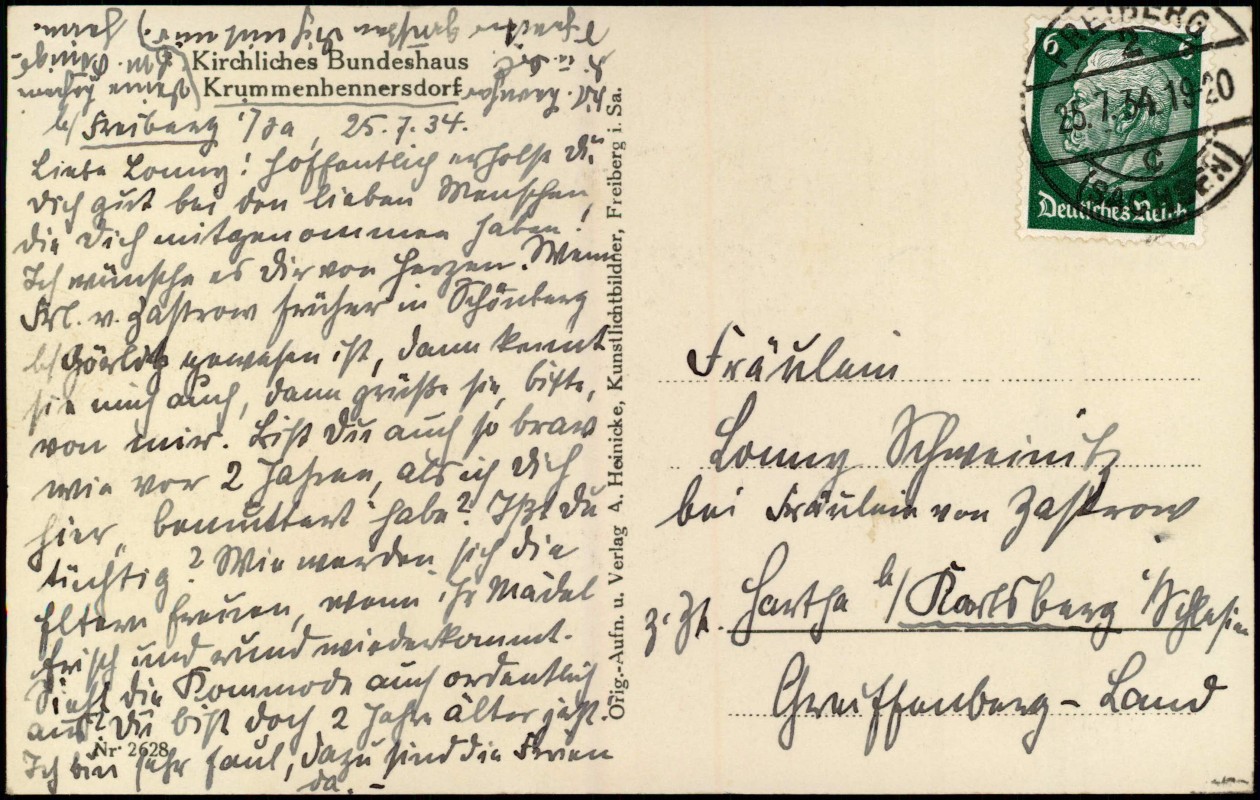 Kirchliches Bundeshaus
Krummenhennersdorf
b/ Freiberg i/Sa, 25.7.34.
Liebe Lonny! Hoffentlich erholst Du
Dich gut bei den lieben Menschen,
die Dich mitgenommen haben!
Ich wünsche es Dir von Herzen. Wenn
Frl. v. Zastrow früher in Schönberg
b/ Görlitz gewesen ist, dann kennt
sie mich auch, dann grüße sie, bitte,
von mir. Bist Du auch so brav
wie vor 2 Jahren, als ich Dich
hier „bemuttert" habe? Ißt Du
tüchtig? Wie werden sich die
Eltern freuen, wenn ihr Mädel
frisch und rund wiederkommt.
Sieht die Kommode auch ordentlich
aus? Du bist doch 2 Jahre älter jetzt.
Ich bin sehr faul, dazu sind die Ferien
da. –
Nr. 2628
Orig.-Aufn. u. Verlag A. Heinicke, Kunstlichtbildner, Freiberg i. Sa.
FREIBERG
2
25.7.34.19-20
c
(SACHSEN)
6
Deutsches Reich
Fräulein
Lonny Schweinitz
bei Fräulein von Zastrow
z. Zt. Hartha b/ Karlsberg i/Schlesien
Greiffenberg-Land